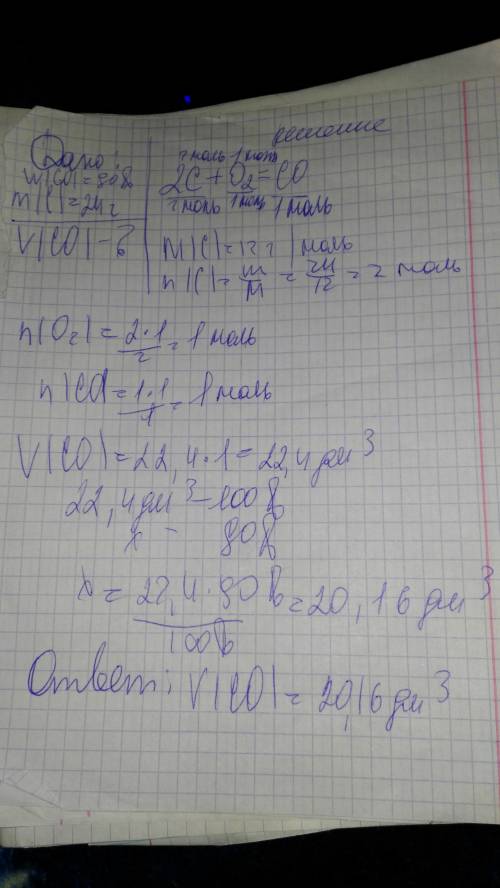 решение
Дано:
W(CO)=90%
m(C)=24г
V(CO)-?
2моль 1моль
2C+O2=CO
2моль 1моль 1моль
M(C)=12г/моль
n(C)=m/M=24/12=2моль
n(O2)=2·1/2=1моль
n(CO)=1·1/1=1моль
V(CO)=22,4·1=22,4дм³
22,4дм³-100%
x - 90%
x=22,4·90%/100%=20,16дм³
Ответ: V(CO)=20,16дм³